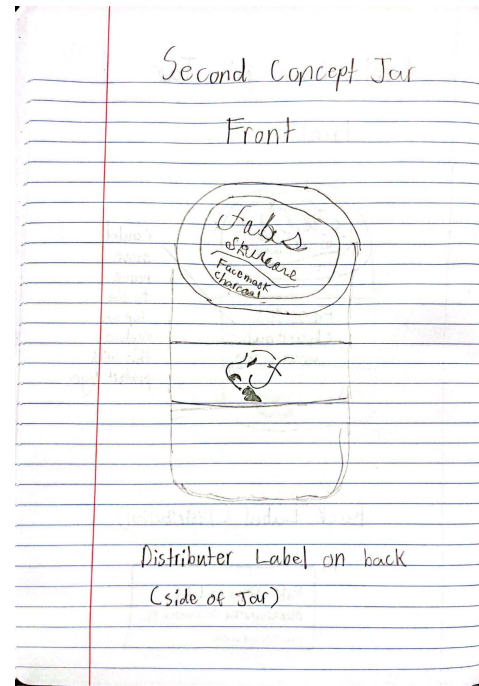 Second Concept Jar
Front
Fabs
Skincare
Facemask
charcoal
f
Distributer Label on back
(side of Jar)